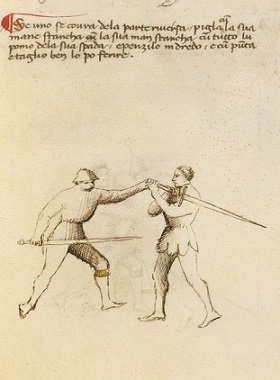 Se uno se covra dela parte riversa, pigla la sua
mane stancha cum la sua man stancha cum tutto lu
pomo dela sua spada, e penzilo in dredo, e cum punta
e taglio ben lo po ferire.